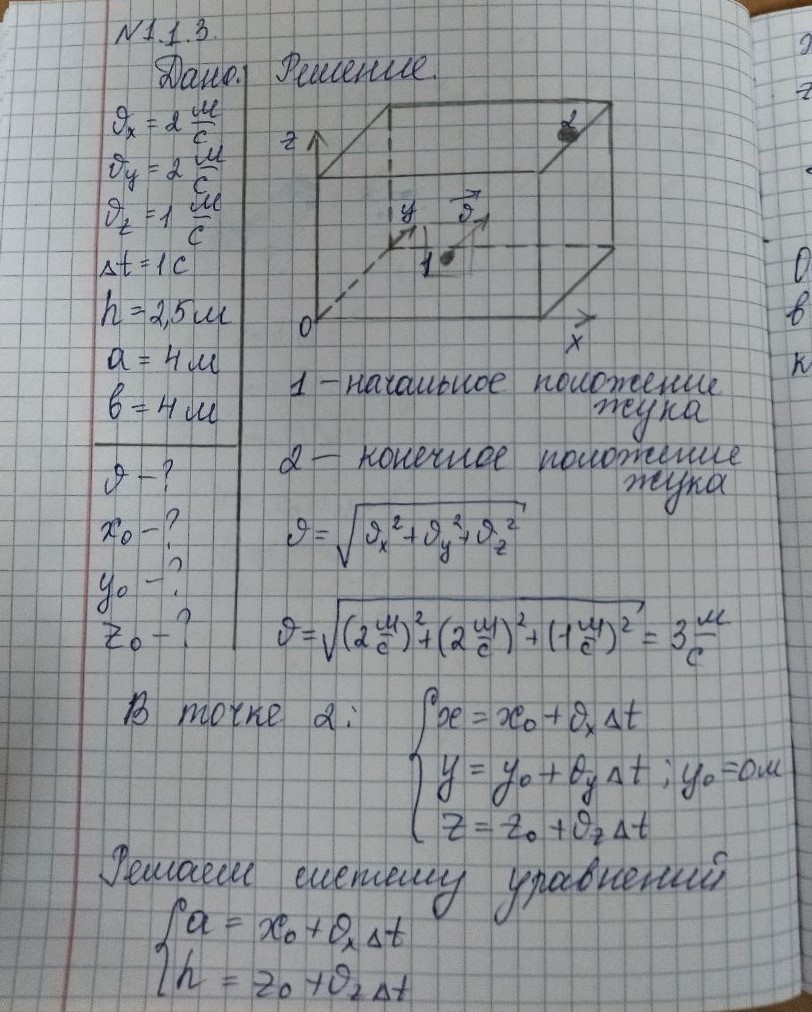 N1.1.3.
Дано: Решение.
ϑx = 2 м/с
ϑy = 2 м/с
ϑz = 1 м/с
Δt = 1 с
h = 2,5 м
a = 4 м
в = 4 м
ϑ – ?
x₀ – ?
y₀ – ?
z₀ – ?
z
2
y
ϑ⃗
1
0
x
1 – начальное положение
жука
2 – конечное положение
жука
ϑ = √(ϑx² + ϑy² + ϑz²)
ϑ = √((2 м/с)² + (2 м/с)² + (1 м/с)²) = 3 м/с
В точке 2: { x = x₀ + ϑx Δt
y = y₀ + ϑy Δt ; y₀ = 0м
z = z₀ + ϑz Δt
Решаем систему уравнений
{ a = x₀ + ϑx Δt
h = z₀ + ϑz Δt
0
в
к